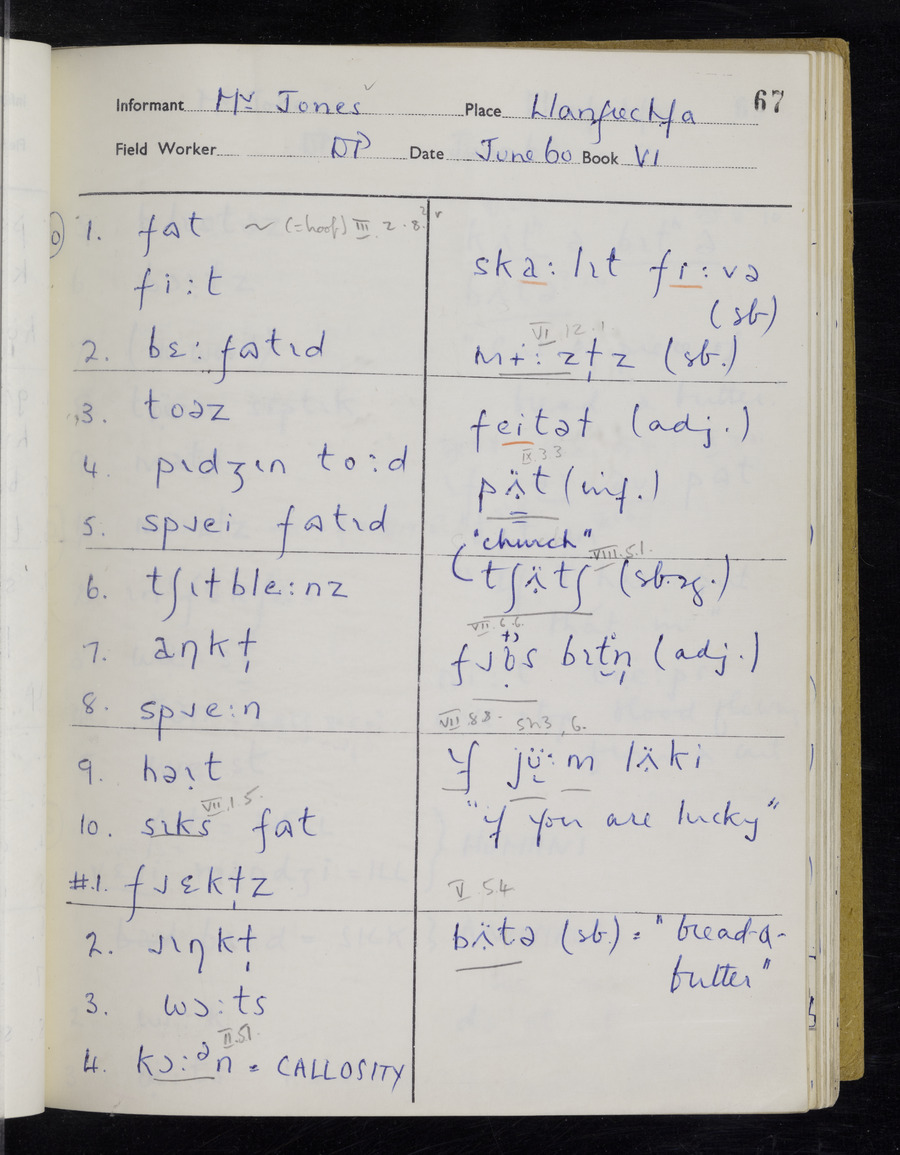 67
Informant Mr Jones Place Llanfrechfa
Field Worker DP Date June 60 Book VI
10
1. fɷt ~ (=hoof) III.2.8
fiːt
2. bɛːfɷtɪd
3. toəz
4. pɪdʒɪn toːd
5. spɹei fɷtɪd
6. tʃɪtbleːnz
7. aŋkɫ̩
8. spɹeːn
9. həɪt
VII.1.5.
10. sɪks fɷt
#.1. fɹɛkɫ̩z
2. ɹɪŋkɫ̩
3. wɔːts
II.5.1.
4. kɔːᵊn = CALLOSITY
skaːlɪt fiːvə
(sb)
VI.12.1.
mɨːzɫ̩z (sb.)
feitəɫ (adj.)
IX.3.3
pʌ̈t (inf.)
"church"
VIII.5.1.
tʃʌ̈tʃ (sb.sg.)
VII.6.6.
bɪtn̩ (adj.)
VII.8.8. 5n3,6.
if jüːm lʌ̈ki
"if you are lucky"
V.5.4
bʌ̈tə (sb.) = "bread-a-
butter"